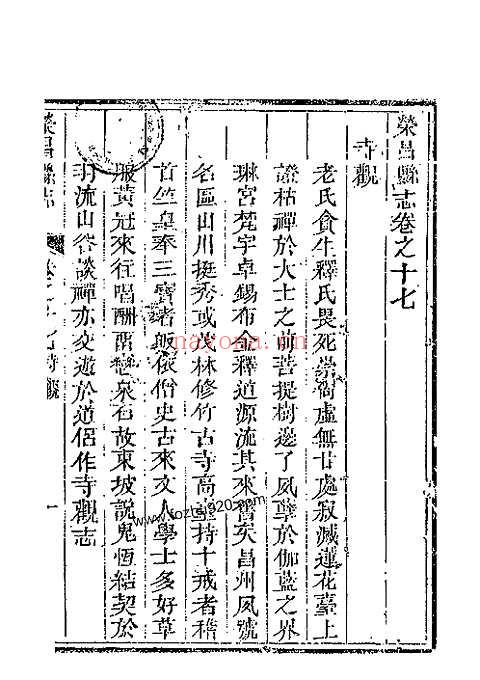 榮昌縣志卷之十七
寺觀
老氏貪生釋氏畏死崇尚虛無甘處寂滅蓮花臺上
證枯禪於大士之前菩提樹邊了夙孽於伽藍之界
琳宮梵宇卓錫布金釋道源流其來舊矣昌州夙號
名區山川挺秀或茂林修竹古寺高 持十戒者稽
首竺皇奉三寶者皈依僧史古來文人學士多好草
服黃冠來往唱酬 泉石故東坡說鬼恆結契於
羽流山谷談禪亦交遊於道侶作寺觀志
榮昌縣志
卷之十七寺觀
一
nayona.cn
www.fozhu920.com